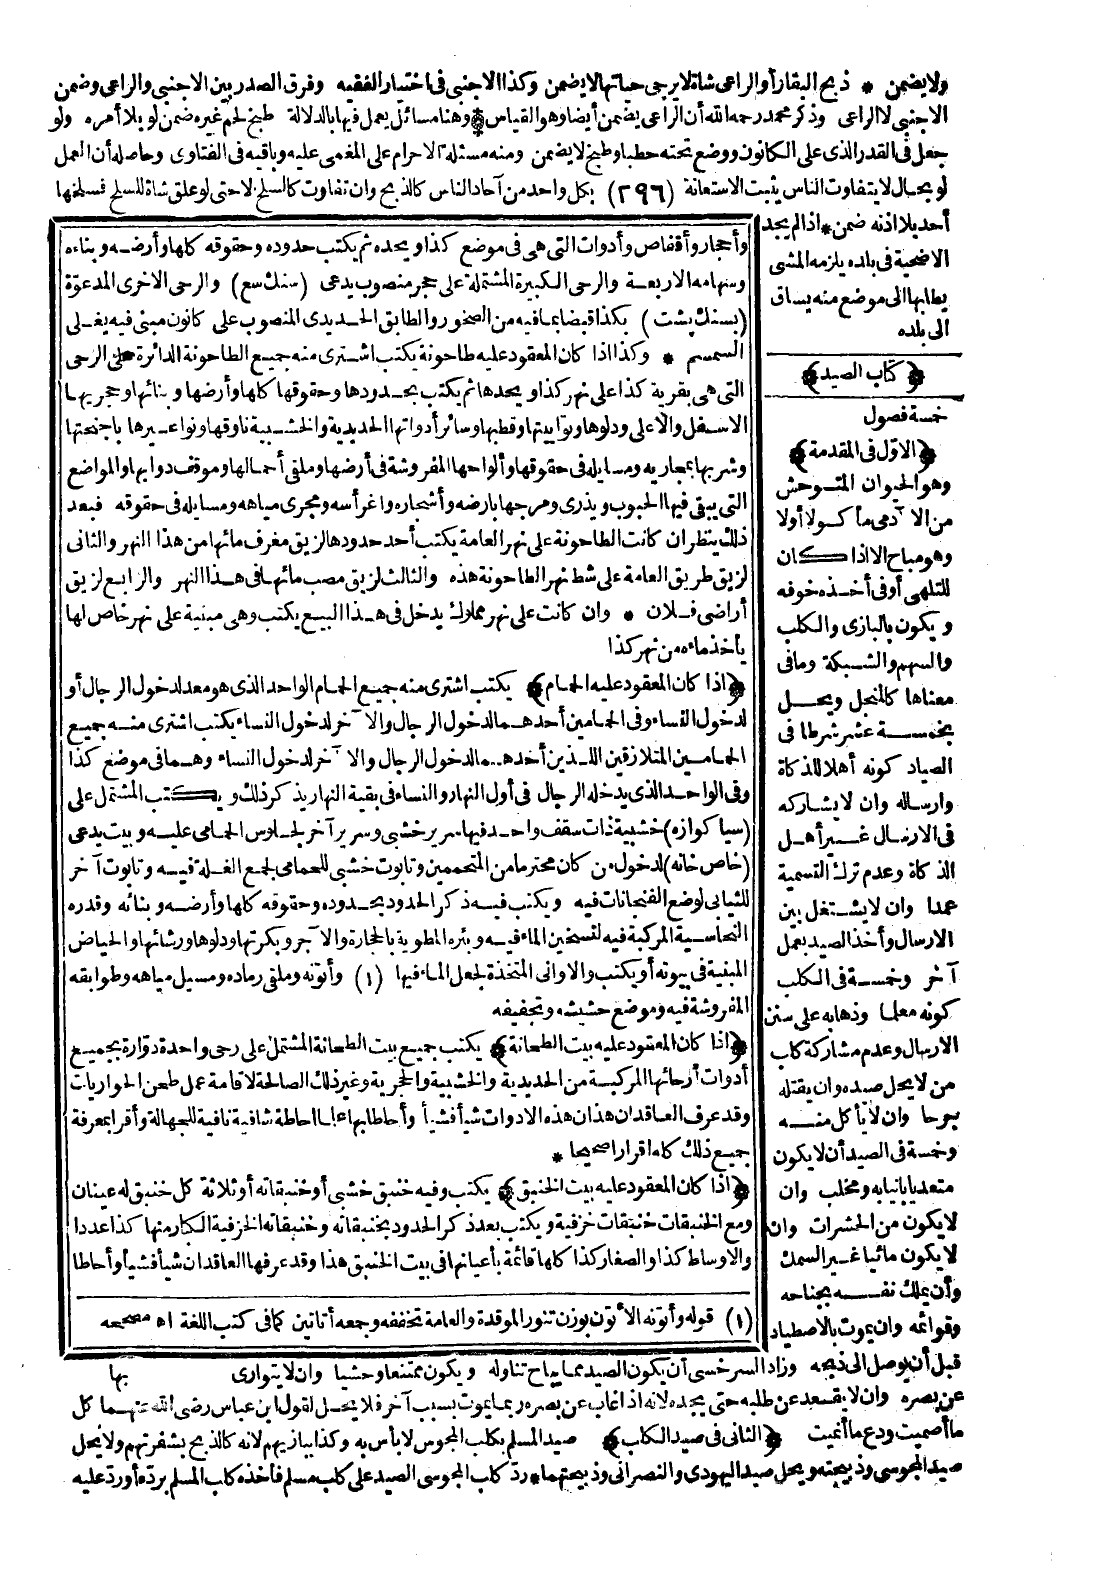 ولا يضمن * ذبح البقار أو الراعى شاة لا يرجى حياتها لا يضمن وكذا الاجنبى فى اختيار الفقيه وفرق الصدر بين الاجنبى والراعى وضمن
الاجنبى لا الراعى وذكر محمد رحمه الله أن الراعى يضمن أيضا وهو القياس * وهنا مسائل يعمل فيها بالدلالة طبخ لحم غيره ضمن لو بلا أمره ولو
جعل فى القدر الذى على الكانون ووضع تحته حطبا وطبخ لا يضمن ومنه مسئلة الاحرام على المغمى عليه وباقيه فى الفتاوى وحاصله أن العمل
لو بحال لا يتفاوت الناس يثبت الاستعانة (٢٩٦) بكل واحد من آحاد الناس كالذبح وان تفاوت كالسلخ لا حتى لو علق شاة للسلخ فسلخها
أحد بلا اذنه ضمن * اذا لم يجد
الاضحية فى بلده يلزمه المشى
بطلبها الى موضع منه يساق
الى بلده
﴿كتاب الصيد﴾
خمسة فصول
﴿الاول فى المقدمة﴾
وهو الحيوان المتوحش
من الا دمى مأكولا أولا
وهو مباح الا اذا كان
للتلهى أو فى أخذه خوفه
ويكون بالبازى والكلب
والسهم والشبكة وما فى
معناها كالمنجل ويحل
بخمسة عشر شرطا فى
الصياد كونه أهلا للذكاة
وارساله وان لا يشاركه
فى الارسال غير أهل
الذكاة وعدم ترك التسمية
عمدا وان لا يشتغل بين
الارسال وأخذ الصيد بعمل
آخر وخمسة فى الكلب
كونه معلما وذهابه على سنن
الارسال وعدم مشاركة كلب
من لا يحل صيده وان يقتله
بوجرحا وان لا يأكل منه
وخمسة فى الصيد أن لا يكون
متعديا بانيابه ومخلب وان
لا يكون من الحشرات وان
لا يكون مائيا غير السمك
وأن يملك نفسه بجناحه
وقوائمه وان يموت بالاصطياد
وأحجار وأقفاص وأدوات التى هى فى موضع كذا ويحده ثم يكتب حدوده وحقوقه كلها وأرضه وبناءه
وسهامه الاربعة والرحى الكبيرة المشتملة على حجر منصوب يدعى (سنك سع) والرحى الاخرى المدعوّة
(بسنك پشت) بكذا قبضا بما فيه من الصخور والطابق الحديدى المنصوب على كانون مبنى فيه يغلى
السمسم * وكذا اذا كان المعقود عليه طاحونة يكتب اشترى منه جميع الطاحونة الدائرة على الرحى
التى هى بقرية كذا على نهر كذا ويحدها ثم يكتب بحدودها وحقوقها كلها وأرضها وبنائها وحجريها
الاسفل والأعلى ودلوها وتوابيتها وقطبها وسائر أدواتها الحديدية والخشبية ناوقها ونواعيرها باجنحتها
وشربها بمجاريه ومسايله فى حقوقها وألواحها المفروشة فى أرضها وملقى أحمالها وموقف دوابها والمواضع
التى يبقى فيها الحبوب ويذرى ومرجها بارضه وأشجاره واغراسه ومجرى مياهه ومسايله فى حقوقه فبعد
ذلك ينظر ان كانت الطاحونة على نهر العامة يكتب أحد حدودها لزيق مغرف مائها من هذا النهر والثانى
لزيق طريق العامة على شط نهر الطاحونة هذه والثالث لزيق مصب مائها فى هذا النهر والرابع لزيق
أراضى فلان * وان كانت على نهر مملوك يدخل فى هذا البيع يكتب وهى مبنية على نهر خاص لها
يأخذ ماءه من نهر كذا
﴿اذا كان المعقود عليه الحمام﴾ يكتب اشترى منه جميع الحمام الواحد الذى هو معد لدخول الرجال أو
لدخول النساء وفى الحمامين أحدهما لدخول الرجال والا خر لدخول النساء يكتب اشترى منه جميع
الحمامين المتلازقين اللذين أحدهما لدخول الرجال والا خر لدخول النساء وهما فى موضع كذا
وفى الواحد الذى يدخله الرجال فى أول النهار والنساء فى بقية النهار يذكر ذلك ويكتب المشتمل على
(سيا كوازه) خشبية ذات سقف واحد فيها سرير خشبى وسرير آخر لجلوس الحمامى عليه وبيت يدعى
(خاص خانه) لدخول من كان محترما من المتحممين وتابوت خشبى للحمامى لجمع الغلة فيه وتابوت آخر
للثيابى لوضع الفنجانات فيه ويكتب فيه ذكر الحدود بحدوده وحقوقه كلها وأرضه وبنائه وقدره
النحاسية المركبة فيه لتسخين الماء فيه وبئره المطوية بالحجارة والا جر وبكرتها ودلوها ورشائها والحياض
المبنية فى بيوته أو يكتب والاوانى المتخذة لجعل الماء فيها (١) وأتونه وملقى رماده ومسيل مياهه وطوابقه
المفروشة فيه وموضع حشيشه وتجفيفه
﴿اذا كان المعقود عليه بيت الطحانة﴾ يكتب جميع بيت الطحانة المشتمل على رحى واحدة دوّارة بجميع
أدوات أرحائها المركبة من الحديدية والخشبية والحجرية وغير ذلك الصالحة لاقامة عمل طحن الحواريات
وقد عرف العاقدان هذان هذه الادوات شيأ فشيأ وأحاطا بها علما احاطة شافية نافية للجهالة وأقرا بمعرفة
جميع ذلك كله اقرارا صحيحا *
﴿اذا كان المعقود عليه بيت الخنبق﴾ يكتب وفيه خنبق خشبى أو خنبقاته أو ثلاثة كل خنبق له عينان
ومع الخنبقات خنبقات خزفية ويكتب بعد ذكر الحدود بخنبقاته وخنبقاته الخزفية الكبار منها كذا عددا
والاوساط كذا والصغار كذا كلها قائمة بأعيانها فى بيت الخنبق هذا وقد عرفها العاقدان شيأ فشيأ وأحاطا
(١) قوله وأتونه الأتون بوزن تنور الموقدة والعامة تخففه وجمعه أتاتين كما فى كتب اللغة اه مصححه
بها
قبل أن يوصل الى ذبحه وزاد السرخسى أن يكون الصيد مما يباح تناوله ويكون ممتنعا وحشيا وان لا يتوارى
عن بصره وان لا يقعد عن طلبه حتى يجده لانه اذا غاب عن بصره ربما يموت بسبب آخر فلا يحل لقول ابن عباس رضى الله عنهما كل
ما أصميت ودع ما أنميت ﴿الثانى فى صيد الكلب﴾ صيد المسلم بكلب المجوس لا بأس به وكذا ببازيهم لانه كالذبح بشفرتهم ولا يحل
صيد المجوسى وذبيحته ويحل صيد اليهودى والنصرانى وذبيحتهما * ردّ كلب المجوسى الصيد على كلب مسلم فأخذه كلب المسلم بردّه أو ردّ عليه